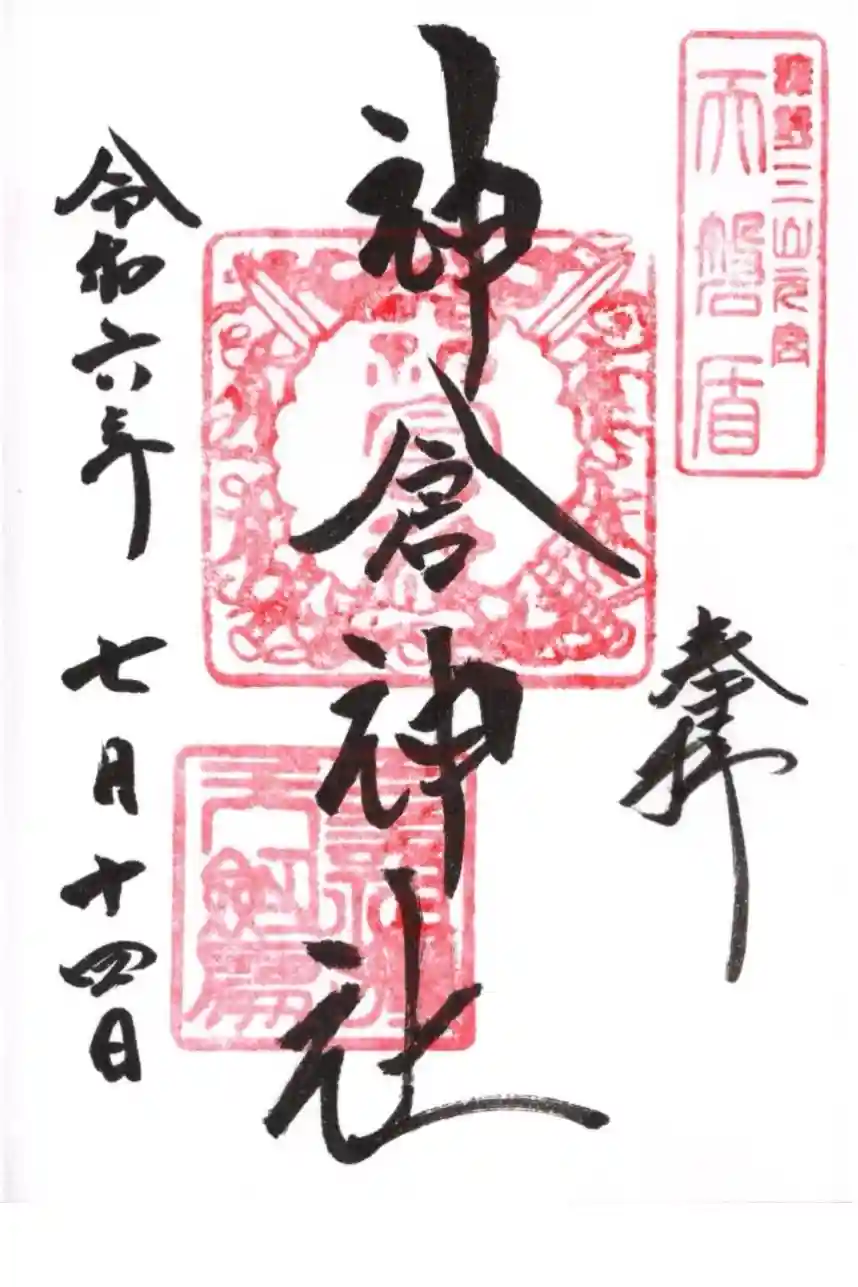 熊野三山元宮
天磐盾
奉拝
神倉神社
令和六年 七月十四日